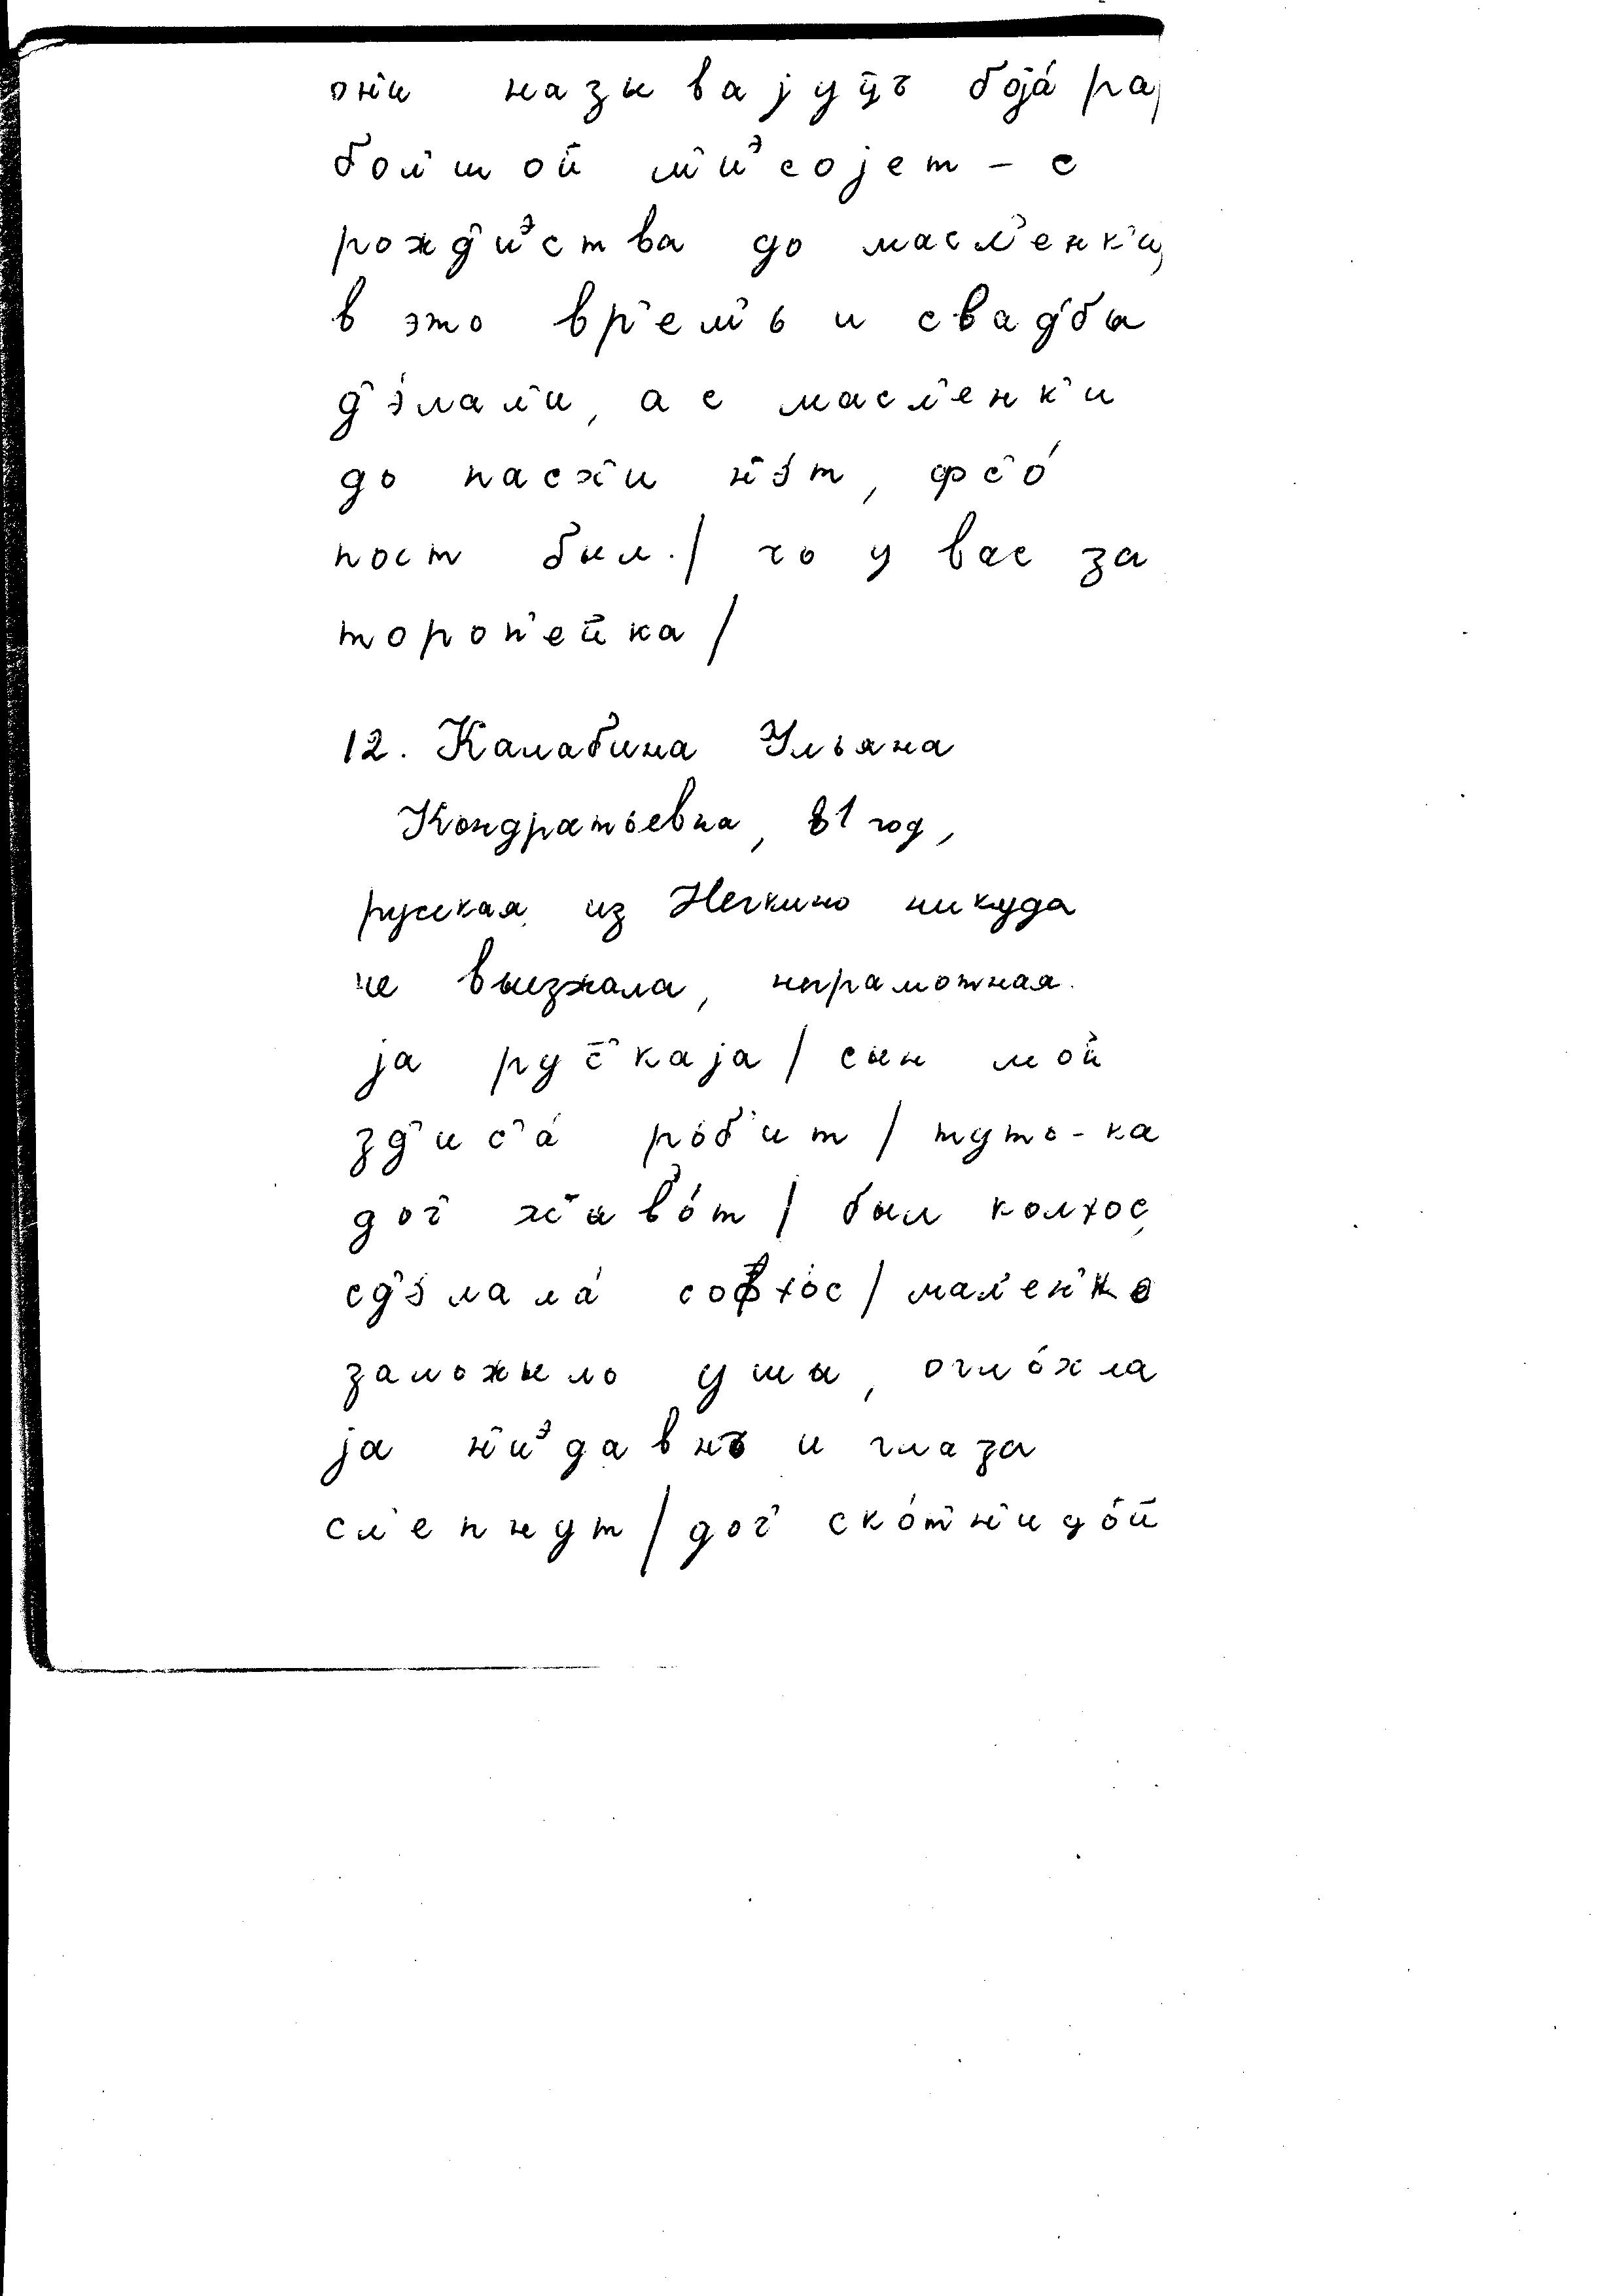 он'и назывajуцъ боjáра,
бол'шой м'и^эсоjет – с
рожд'и^эства до масл'енк'и,
в это вр'ем'ь и свад'бы
д'э́лал'и, а с масл'енк'и
до пасх'и н'э́т, фс'о́
пост был./ чо у вас за
тороп'ейка /
12. Калабина Ульяна
Кондратьевна, 81 год,
русская, из Нечкино никуда
не выезжала, неграмотная.
jа рус̄'каjа / сын мой
зд'ис'а́ ро́б'ит / туто-ка
доч' жыв'о́т / был колхос,
сд'э́лала́ софхо́с / мал'ен'ко
заложыло ушы, огло́хла
jа н'и^эдавнъ и глаза
сл'епнут / доч' ско́т'н'идо́й